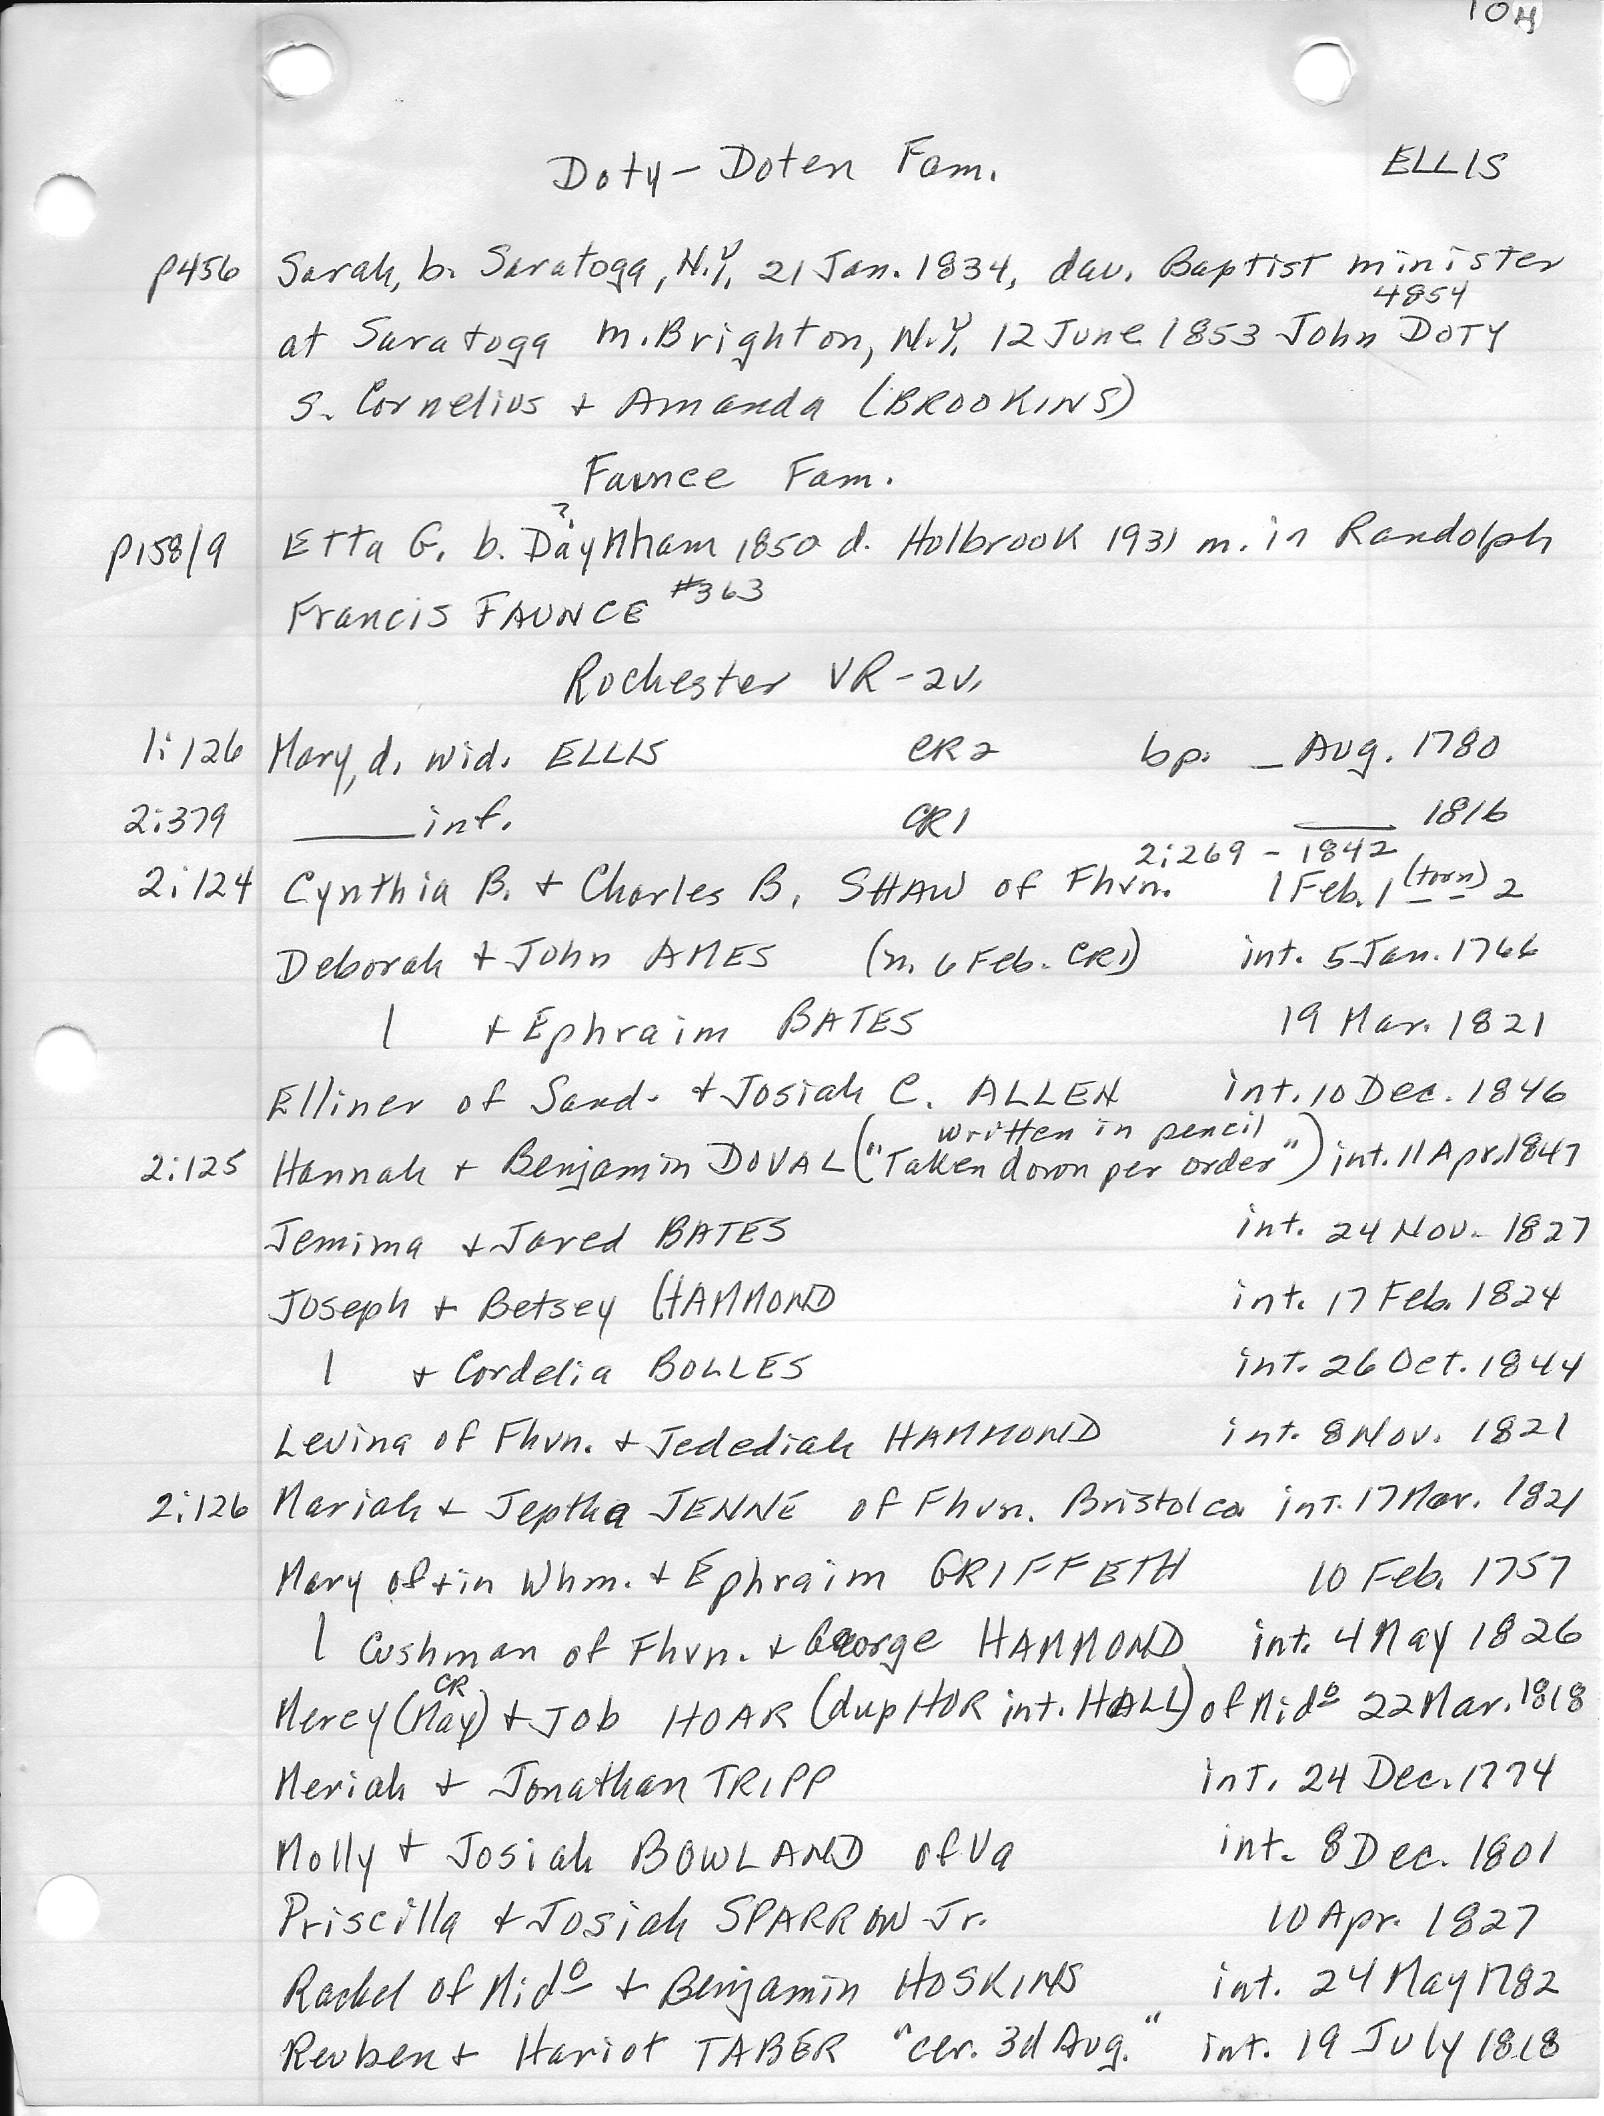 104
Doty-Doten Fam. ELLIS
p456 Sarah, b. Saratoga, N.Y. 21 Jan. 1834, dau. Baptist minister
4854
at Saratoga m. Brighton, N.Y. 12 June 1853 John DOTY
s. Cornelius + Amanda (BROOKINS)
Faunce Fam.
?
p158/9 Etta G. b. Daynham 1850 d. Holbrook 1931 m. in Randolph
Francis FAUNCE #363
Rochester VR-2v.
1:126 Mary, d. wid. ELLIS CR2 bp. _ Aug. 1780
2:379 ____ inf. CR1 ____ 1816
2:269 - 1842
2:124 Cynthia B. + Charles B. SHAW of Fhvn. 1 Feb. 1 (torn) _ _ 2
Deborah + John AMES (m. 6 Feb. CR1) int. 5 Jan. 1766
| + Ephraim BATES 19 Mar. 1821
Elliner of Sand. + Josiah C. ALLEN int. 10 Dec. 1846
written in pencil
2:125 Hannah + Benjamin DOVAL ("Taken down per order") int. 11 Apr. 1847
Jemima + Jared BATES int. 24 Nov. 1827
Joseph + Betsey HAMMOND int. 17 Feb. 1824
| + Cordelia BOLLES int. 26 Oct. 1844
Levina of Fhvn. + Jedediah HAMMOND int. 8 Nov. 1821
2:126 Mariah + Jeptha JENNE of Fhvn. Bristol co. int. 17 Mar. 1821
Mary of + in Whm. + Ephraim GRIFFETH 10 Feb. 1757
| Cushman of Fhvn. + George HAMMOND int. 4 May 1826
CR
Mercy (May) + Job HOAR (dup HOR int. HALL) of Mido 22 Mar. 1818
Meriah + Jonathan TRIPP int. 24 Dec. 1774
Molly + Josiah BOWLAND of Va int. 8 Dec. 1801
Priscilla + Josiah SPARROW Jr. 10 Apr. 1827
Rachel of Mido + Benjamin HOSKINS int. 24 May 1782
Reuben + Hariot TABER "cer. 3d Aug." int. 19 July 1818